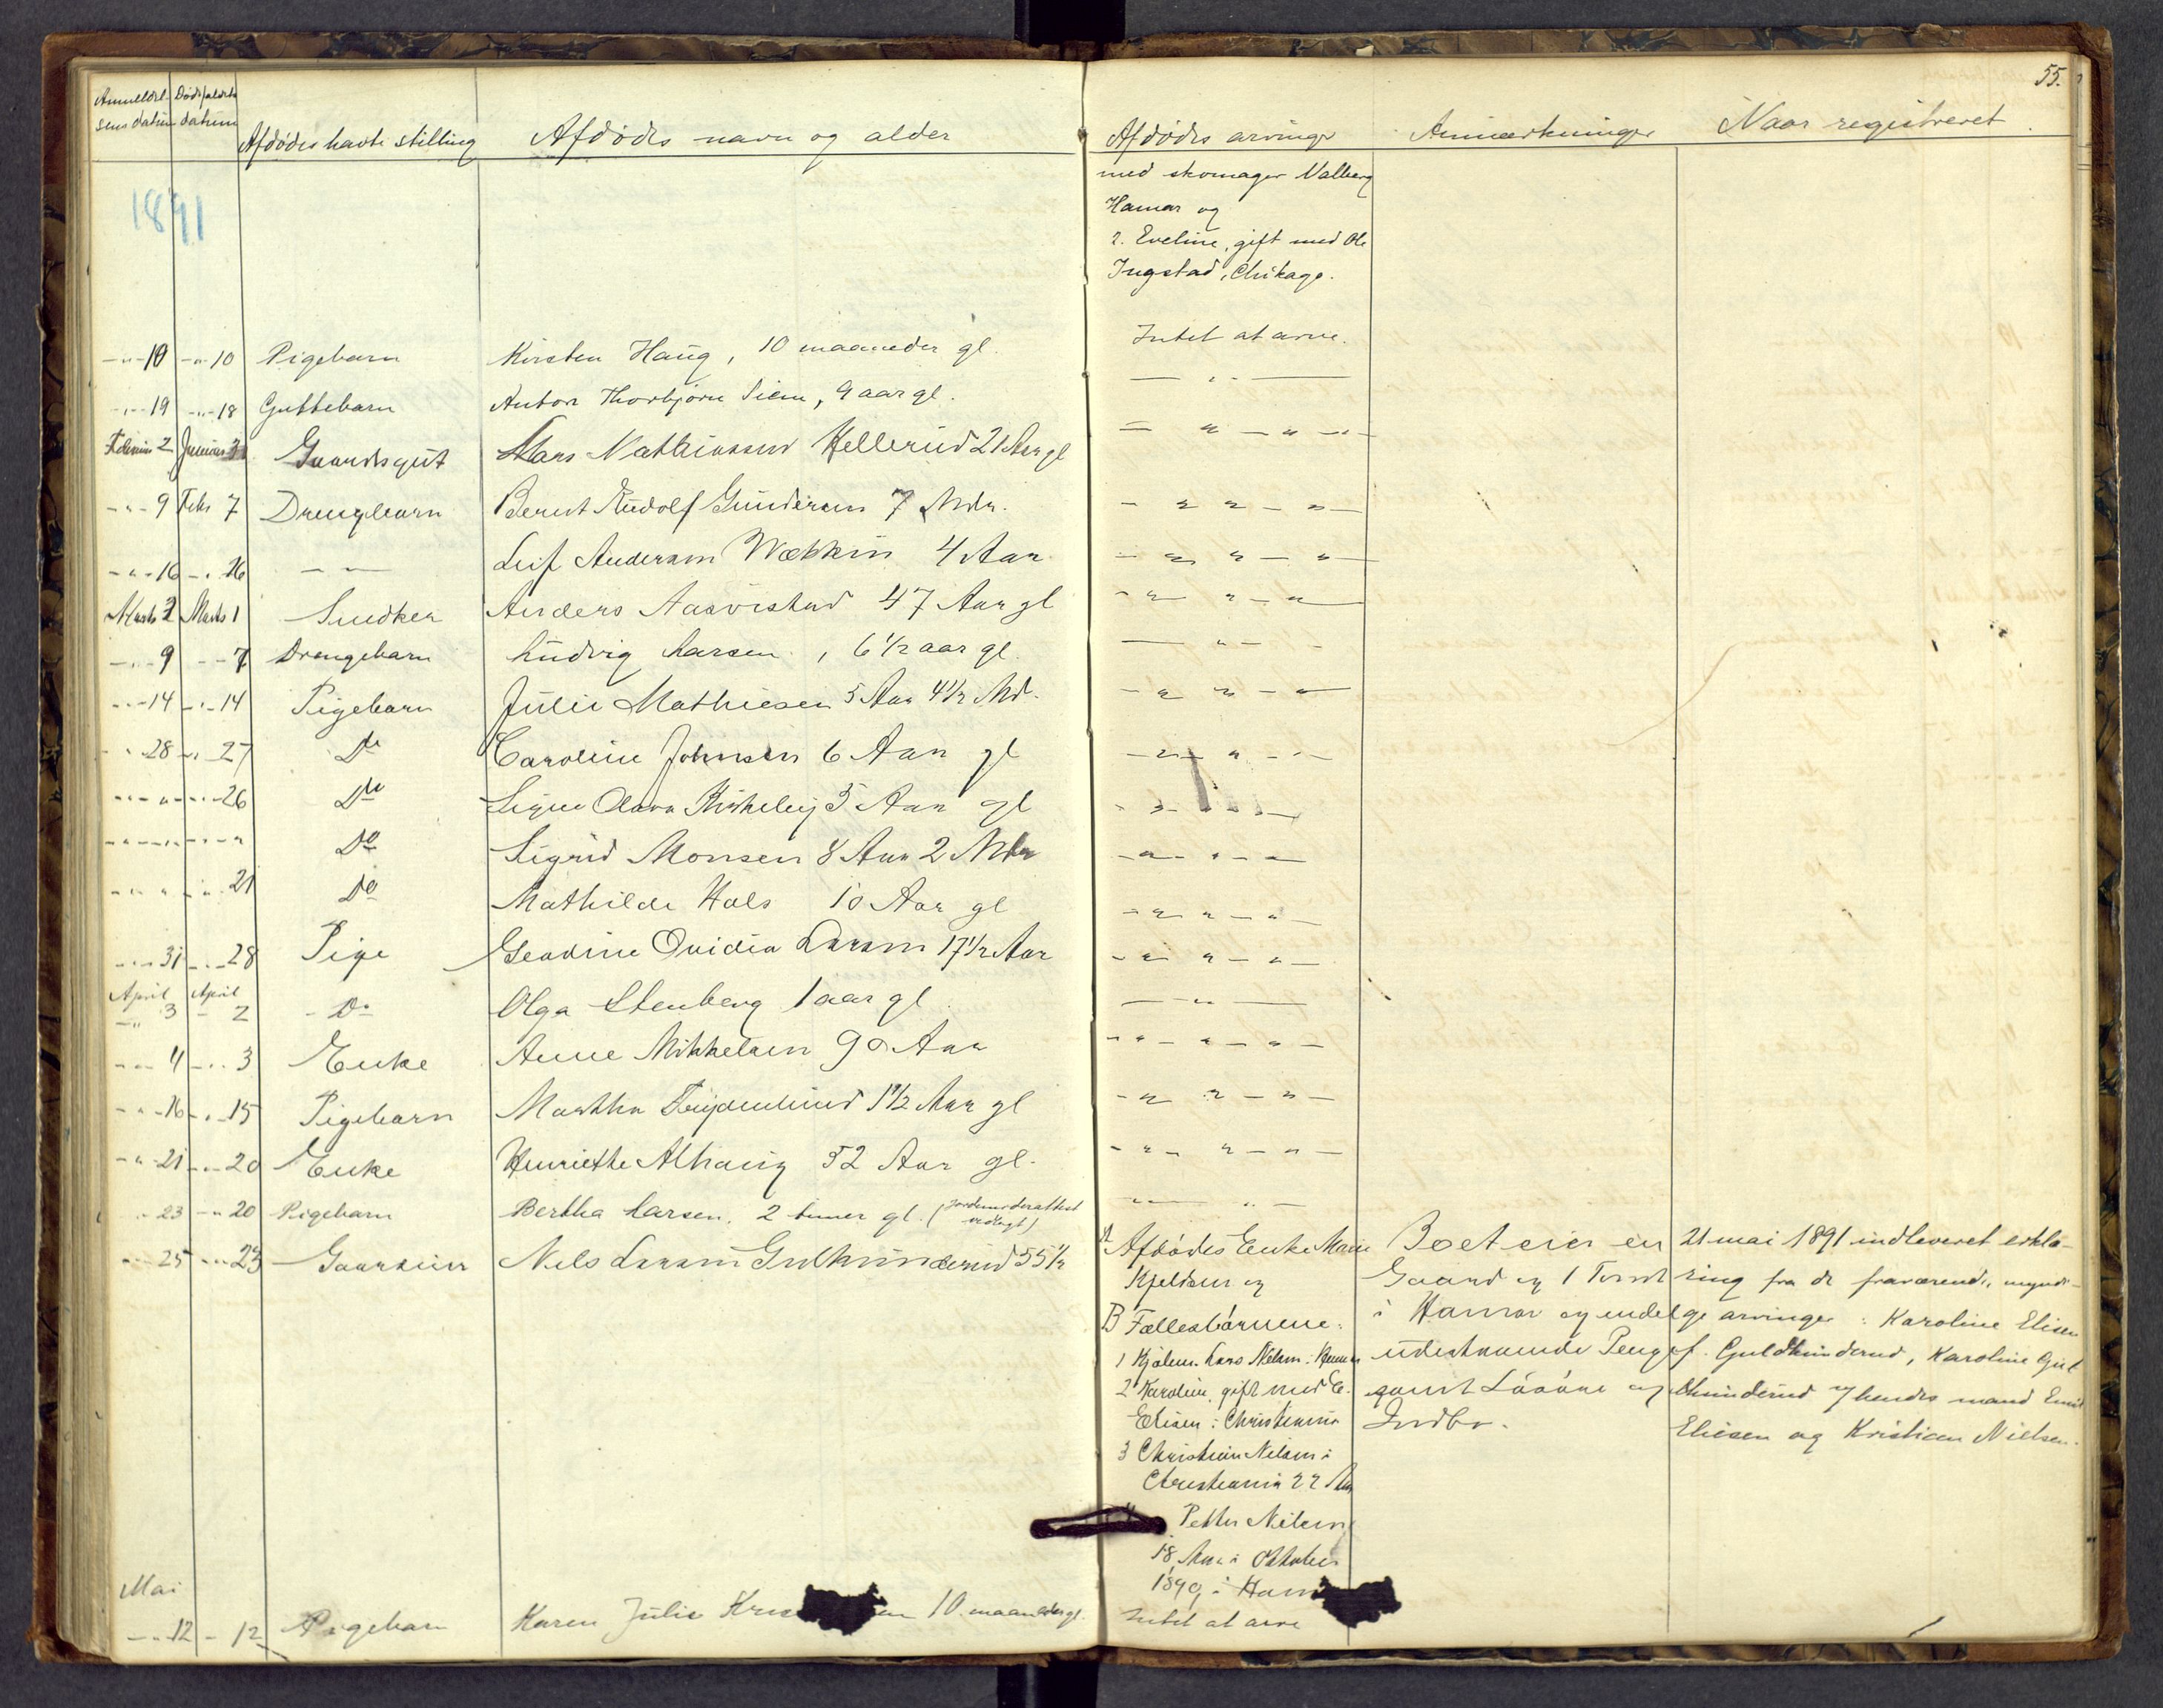 55.
Anmeldel-
sens datum
Dødsfaldets
datum
Afdødes havte stilling
Afdødes navn og alder
Afdødes arvinger
Anmærkninger
Naar registreret
1891
med skomager Valberg
Hamar og
2. Eveline, gift med Ole
Ingstad, Chikago.
-"- 10 -"- 10 Pigebarn Kirsten Haug, 10 maaneder gl. Intet at arve.
-"- 19 -"- 18 Guttebarn Anton Thorbjørn Siem, 9 aar gl. — " —
Februar 2 Januar 31 Gaardsgut Hans Mathiassen Hellerud 21 Aar gl — " — " —
-"- 9 Febr 7 Drengebarn Bernt Rudolf Gundersen 7 Mdr. - " " — " —
-"- 16 -"- 16 — " — Leif Andersen Wækkin 4 Aar — " " — " —
Marts 2 Marts 1 Snedker Anders Aasvistad 47 Aar gl - " " — " —
-"- 9 -"- 7 Drengebarn Ludvig Larsen, 6 1/2 aar gl. — " —
-"- 14 -"- 14 Pigebarn Julie Mathiesen 5 Aar 4 1/2 Md. - " " — " —
-"- 28 -"- 27 Do Caroline Johnsen 6 Aar gl — " " - "
-"- " -"- 26 Do Signe Olava Kirkeby 5 Aar gl - " " " —
-"- " -"- " Do Sigrid Monsen 8 Aar 2 Mdr — " - " — " —
-"- " -"- 21 Do Mathilde Hals 10 Aar gl — " " — " —
-"- 31 -"- 28 Pige Ovidia Larsen 17 1/2 Aar - " " — " —
April April
-"- 3 - 2 - Do Olga Stenberg 1 aar gl. — " —
-"- 4 -"- 3 Enke Anne Mikkelsen 90 Aar - " — " — " —
-"- 16 -"- 15 Pigebarn Martha 1 1/2 Aar gl - " " — " —
-"- 21 -"- 20 Enke Henriette Alhaug 52 Aar gl. - " " — " —
" 23 -"- 20 Pigebarn Bertha Larsen, 2 timer gl. (Jordemoderattest
vedlagt) — " —
-"- 25 -"- 23 Gaardeier Nels Larsen Gulhunderud 55 1/2
A Afdødes Enke Marie
Kjeldsen og
B Fællesbørnene:
1 Kjølem. Lars Nilsen:
2 Karoline, gift med E.
Elisen i Christiania
3 Christian Nilsen i
Christiania 22 Aar
Petter Nilsen
18 Aar i Oktober
1890, i Ham
Boet eier en
Gaard og 1 Tomt
i Hamar og endel
udestaaende Penge
samt Løsøre og
Indbo.
21 mai 1891 indleveret erklæ-
ring fra de fraværende, myndi-
ge arvinger: Karoline Elisen
f. Guldhunderud, Karoline Gul
hunderud og hendes mand Emil
Eliesen og Kristian Nielsen.
Mai
-"- 12 - 12 Pigebarn Karen Julie Kris en 10 maaneder gl. Intet at arve